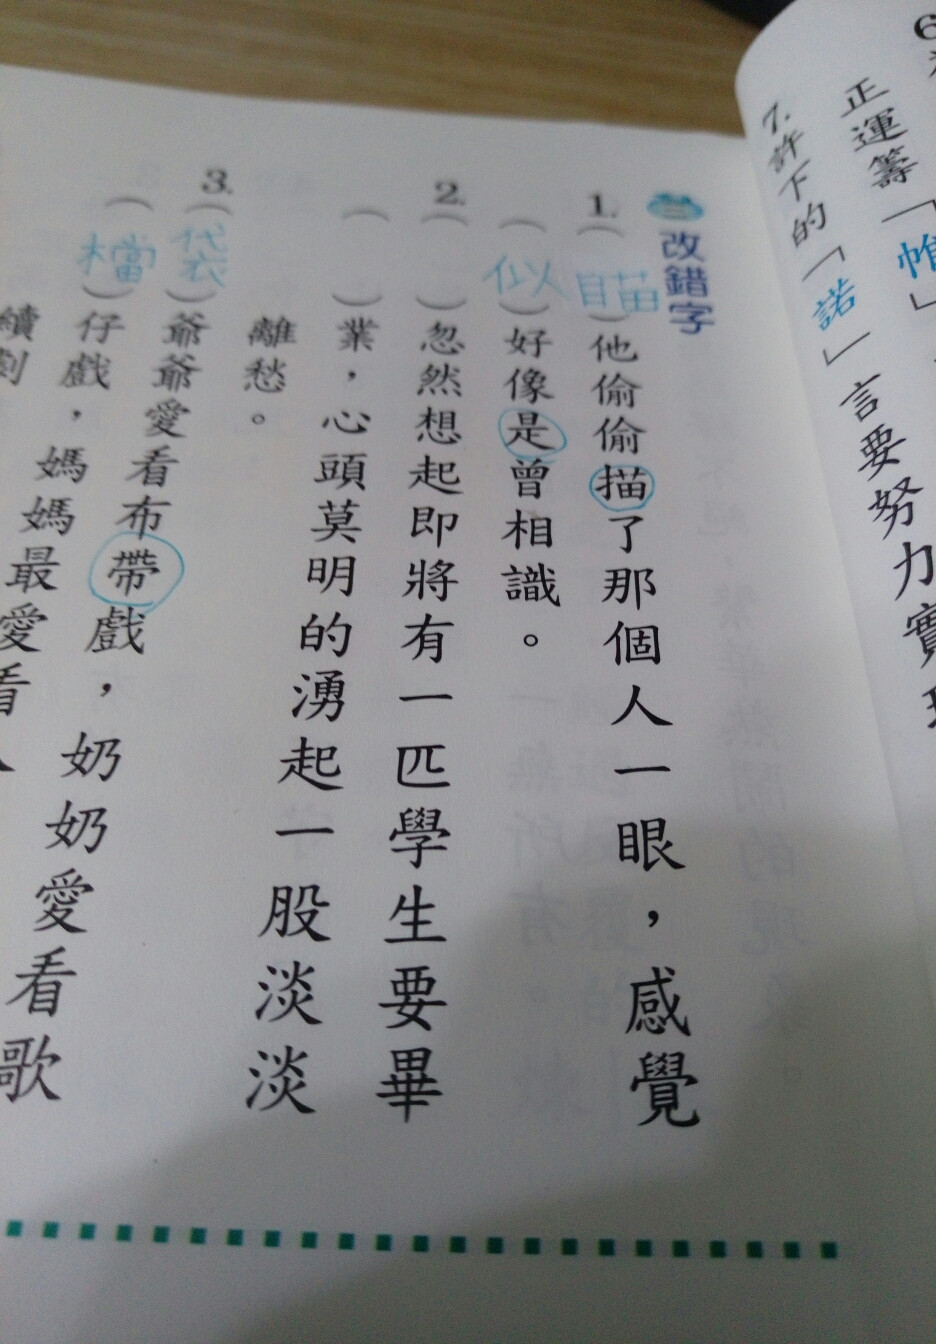 6.
正運籌「帷」
7.許下的「諾」言要努力實
改錯字
1.(瞄)他偷偷描了那個人一眼，感覺
(似)好像是曾相識。
2.( )忽然想起即將有一匹學生要畢
( )業，心頭莫明的湧起一股淡淡
離愁。
3.(袋)爺爺愛看布帶戲，奶奶愛看歌
(檔)仔戲，媽媽最愛看
續劇